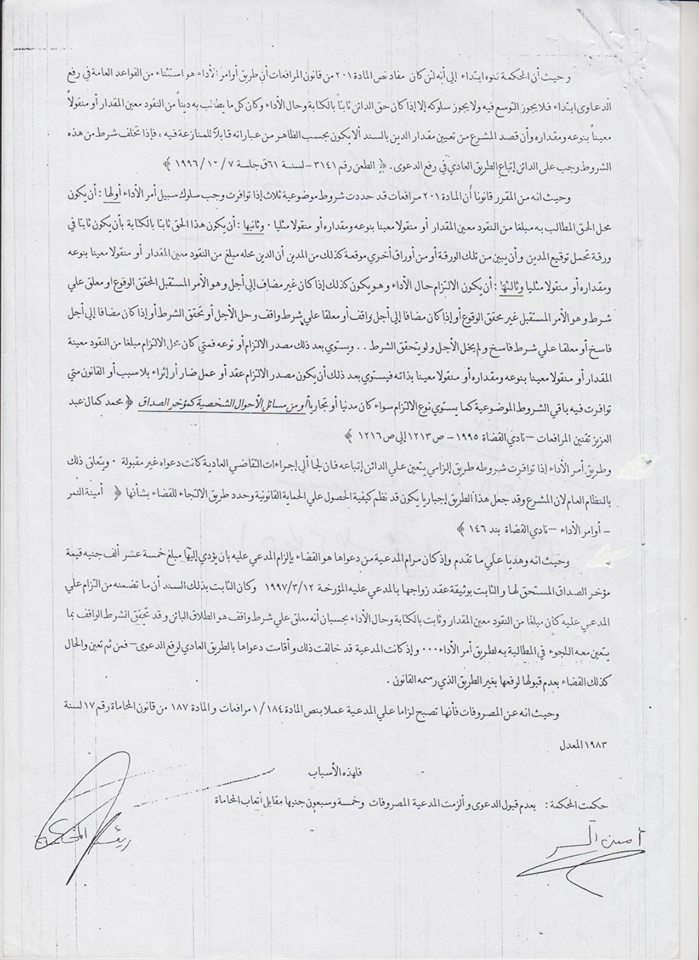 وحيث أن المحكمة تنوه ابتداء إلى أنه لئن كان مفاد نص المادة ٢٠١ من قانون المرافعات أن طريق أوامر الأداء هو استثناء من القواعد العامة في رفع
الدعاوى ابتداء فلا يجوز التوسع فيه ولا يجوز سلوكه إلا إذا كان حق الدائن ثابتاً بالكتابة وحال الأداء وكان كل ما يطالب به ديناً من النقود معين المقدار أو منقولاً
معيناً بنوعه ومقداره وأن قصد المشرع من تعيين مقدار الدين بالسند ألا يكون بحسب الظاهر من عباراته قابلاً للمنازعة فيه ، فإذا تخلف شرط من هذه
الشروط وجب على الدائن إتباع الطريق العادي في رفع الدعوى . ﴿ الطعن رقم ٣١٤١ - لسنة ٦١ ق جلسة ١٩٩٦/١٠/٧ ﴾
وحيث انه من المقرر قانونا أن المادة ٢٠١ مرافعات قد حددت شروط موضوعية ثلاث إذا توافرت وجب سلوك سبيل أمر الأداء أولها : أن يكون
محل الحق المطالب به مبلغا من النقود معين المقدار أو منقولا معينا بنوعه ومقداره أو منقولا مثليا - وثانيها : أن يكون هذا الحق ثابتا بالكتابة بأن يكون ثابتا في
ورقة تحمل توقيع المدين وأن يبين من تلك الورقة أو من أوراق أخرى موقعة كذلك من المدين أن الدين محله مبلغ من النقود معين المقدار أو منقولا معينا بنوعه
ومقداره أو منقولا مثليا وثالثها : أن يكون الالتزام حال الأداء وهو يكون كذلك إذا كان غير مضاف إلى أجل وهو الأمر المستقبل المحقق الوقوع أو معلق علي
شرط وهو الأمر المستقبل غير محقق الوقوع أو إذا كان مضافا إلى أجل واقف أو معلقا علي شرط واقف وحل الأجل أو تحقق الشرط أو إذا كان مضافا إلى أجل
فاسخ أو معلقا علي شرط فاسخ ولم يحل الأجل ولو يتحقق الشرط . . ويستوي بعد ذلك مصدر الالتزام أو نوعه فمتي كان محل الالتزام مبلغا من النقود معينة
المقدار أو منقولا معينا بنوعه ومقداره أو منقولا معينا بذاته فيستوي بعد ذلك أن يكون مصدر الالتزام عقد أو عمل ضار أو إثراء بلا سبب أو القانون متي
توافرت فيه باقي الشروط الموضوعية كما يستوي نوع الالتزام سواء كان مدنيا أو تجارياً أو من مسائل الأحوال الشخصية كمؤخر الصداق ﴿ محمد كمال عبد
العزيز تقنين المرافعات - نادي القضاة ١٩٩٥ - ص ١٢١٣ إلى ص ١٢١٦ ﴾
وطريق أمر الأداء إذا توافرت شروطه طريق إلزامي يتعين علي الدائن إتباعه فان لجأ ألى إجراءات التقاضي العادية كانت دعواه غير مقبولة - ويتعلق ذلك
بالنظام العام لان المشرع وقد جعل هذا الطريق إجباريا يكون قد نظم كيفية الحصول علي الحماية القانونية وحدد طريق الالتجاء للقضاء بشأنها ﴿ أمينة النمر
- أوامر الأداء - نادي القضاة بند ١٤٦ ﴾
وحيث انه وهديا علي ما تقدم وإذ كان مرام المدعية من دعواها هو القضاء بإلزام المدعي عليه بان يؤدي إليها مبلغ خمسة عشر ألف جنيه قيمة
مؤخر الصداق المستحق لها والثابت بوثيقة عقد زواجها بالمدعي عليه المؤرخة ١٩٩٧/٣/١٢ وكان الثابت بذلك السند أن ما تضمنه من التزام علي
المدعي عليه كان مبلغا من النقود معين المقدار وثابت بالكتابة وحال الأداء بحسبان أنه معلق علي شرط واقف هو الطلاق البائن وقد تحقق الشرط الواقف بما
يتعين معه اللجوء في المطالبة به لطريق أمر الأداء ٠٠٠ وإذ كانت المدعية قد خالفت ذلك وأقامت دعواها بالطريق العادي لرفع الدعوى - فمن ثم تعين والحال
كذلك القضاء بعدم قبولها لرفعها بغير الطريق الذي رسمه القانون .
وحيث انه عن المصروفات فأنها تصبح لزاما علي المدعية عملا بنص المادة ١/١٨٤ مرافعات و المادة ١٨٧ من قانون المحاماة رقم ١٧ لسنة
١٩٨٣ المعدل
فلهذه الأسباب
حكمت المحكمة : بعدم قبول الدعوى وألزمت المدعية المصروفات وخمسة وسبعون جنيها مقابل أتعاب المحاماة
أمين السر
رئيس المحكمة